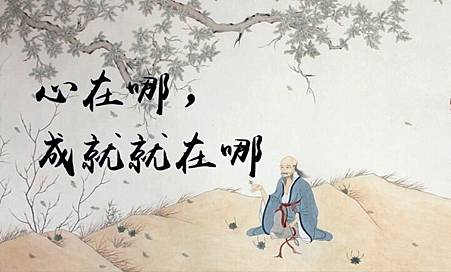 心在哪，
成就就在哪